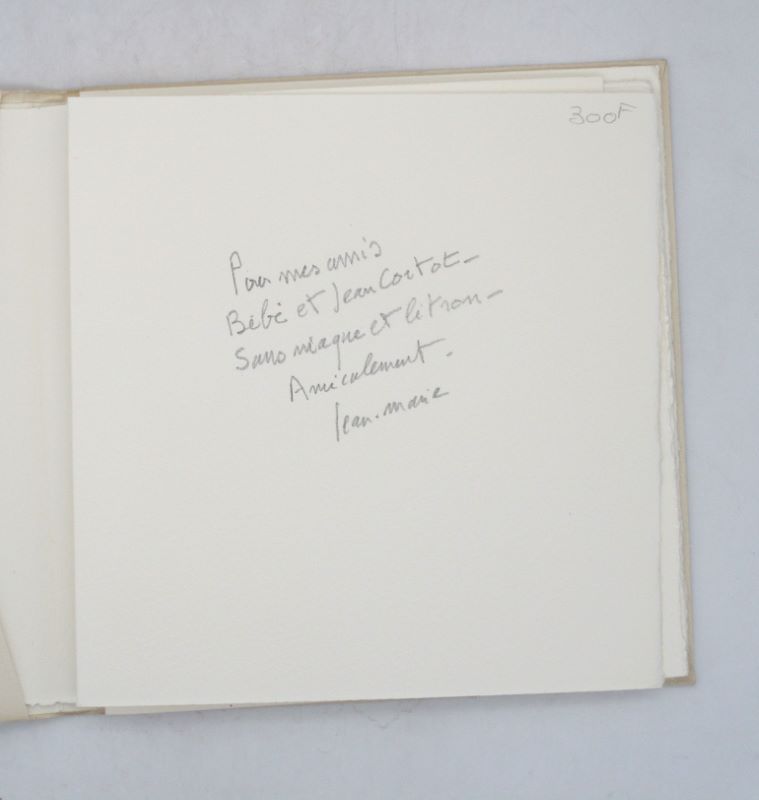 300F
Pour mes amis
Bébé et Jean Cortot –
Sans et litron –
Amicalement.
Jean-Marie